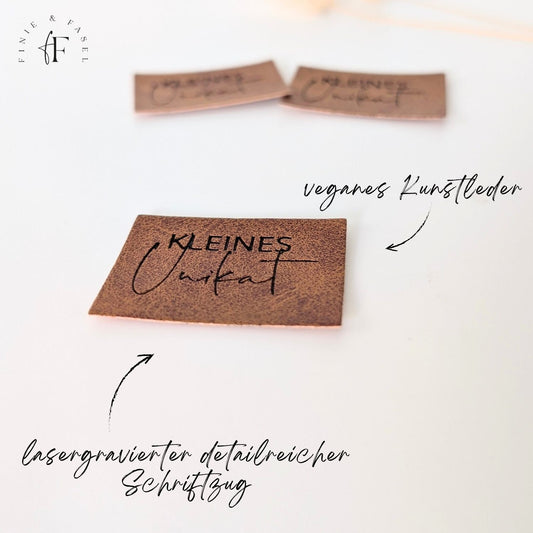 FINIE & FASEL
fF
KLEINES
Unikat
KLEINES
Unikat
veganes Kunstleder
KLEINES
Unikat
lasergravierter detailreicher
Schriftzug